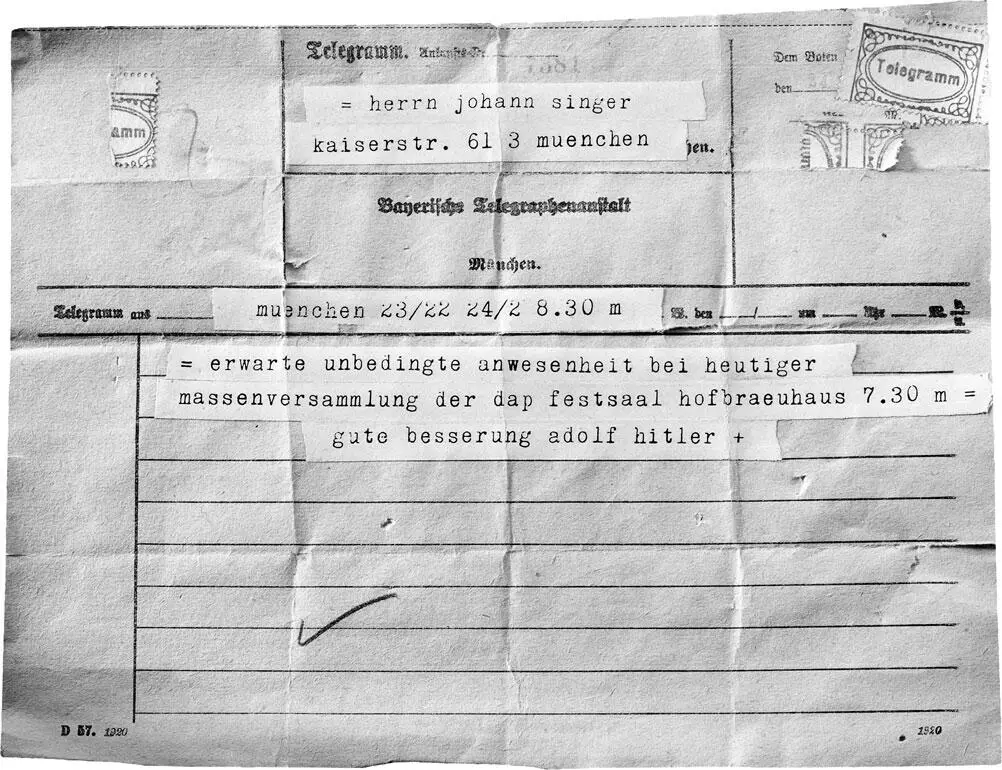 Telegramm. Ankunfts-Nr.
Dem Boten
den
Telegramm
= herrn johann singer
kaiserstr. 61 3 muenchen
hen.
amm
Bayerische Telegraphenanstalt
München.
Telegramm aus muenchen 23/22 24/2 8.30 m W. den / um Uhr M.
= erwarte unbedingte anwesenheit bei heutiger
massenversammlung der dap festsaal hofbraeuhaus 7.30 m =
gute besserung adolf hitler +
D 57. 1920
1920